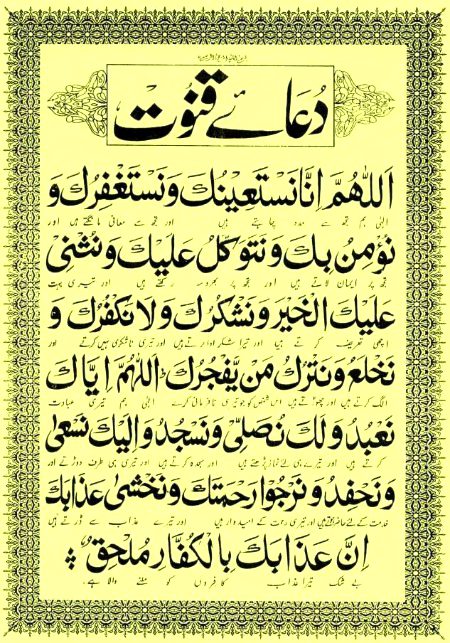 دُعائے قنوت
اَللّٰهُمَّ اِنَّا نَسْتَعِيْنُكَ وَنَسْتَغْفِرُكَ وَ
الٰہی ہم تجھ سے مدد چاہتے ہیں اور تجھ سے معافی مانگتے ہیں اور
نُؤْمِنُ بِكَ وَنَتَوَكَّلُ عَلَيْكَ وَنُثْنِيْ
تجھ پر ایمان لاتے ہیں اور تجھ پر بھروسہ رکھتے ہیں اور تیری بہت
عَلَيْكَ الْخَيْرَ وَنَشْكُرُكَ وَلَا نَكْفُرُكَ وَ
اچھی تعریف کرتے ہیں اور تیرا شکر ادا کرتے ہیں اور تیری ناشکری نہیں کرتے اور
نَخْلَعُ وَنَتْرُكُ مَنْ يَّفْجُرُكَ ؕ اَللّٰهُمَّ اِيَّاكَ
الگ کرتے ہیں اور چھوڑتے ہیں اس شخص کو جو تیری نافرمانی کرے الٰہی ہم تیری عبادت
نَعْبُدُ وَلَكَ نُصَلِّيْ وَنَسْجُدُ وَاِلَيْكَ نَسْعٰى
کرتے ہیں اور تیرے ہی لئے نماز پڑھتے ہیں اور سجدہ کرتے ہیں اور تیری ہی طرف دوڑتے اور
وَنَحْفِدُ وَنَرْجُوْا رَحْمَتَكَ وَنَخْشٰى عَذَابَكَ
خدمت کے لئے حاضر ہوتے ہیں اور تیری رحمت کے امیدوار ہیں اور تیرے عذاب سے ڈرتے ہیں
اِنَّ عَذَابَكَ بِالْكُفَّارِ مُلْحِقٌ ؕ
بے شک تیرا عذاب کافروں کو ملنے والا ہے۔